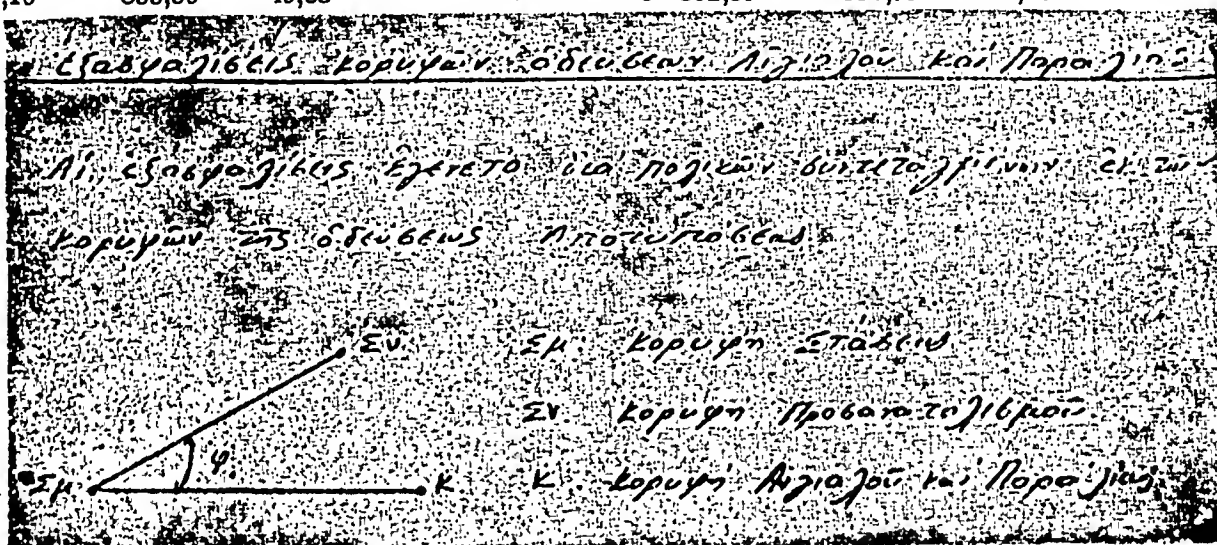 Ἐξασφαλίσεις κορυφῶν ὁδεύσεων Αἰγιαλοῦ καί Παραλίας
Αἱ ἐξασφαλίσεις ἐγένετο διά πολικῶν συντεταγμένων ἐκ τῶν
κορυφῶν τῆς ὁδεύσεως Ἀποτυπώσεως
Σν. Σμ. Κορυφή Στάσεως
Σν. Κορυφή Προσανατολισμοῦ
Σμ. φ. Κ Κ. Κορυφή Αἰγιαλοῦ καί Παραλίας